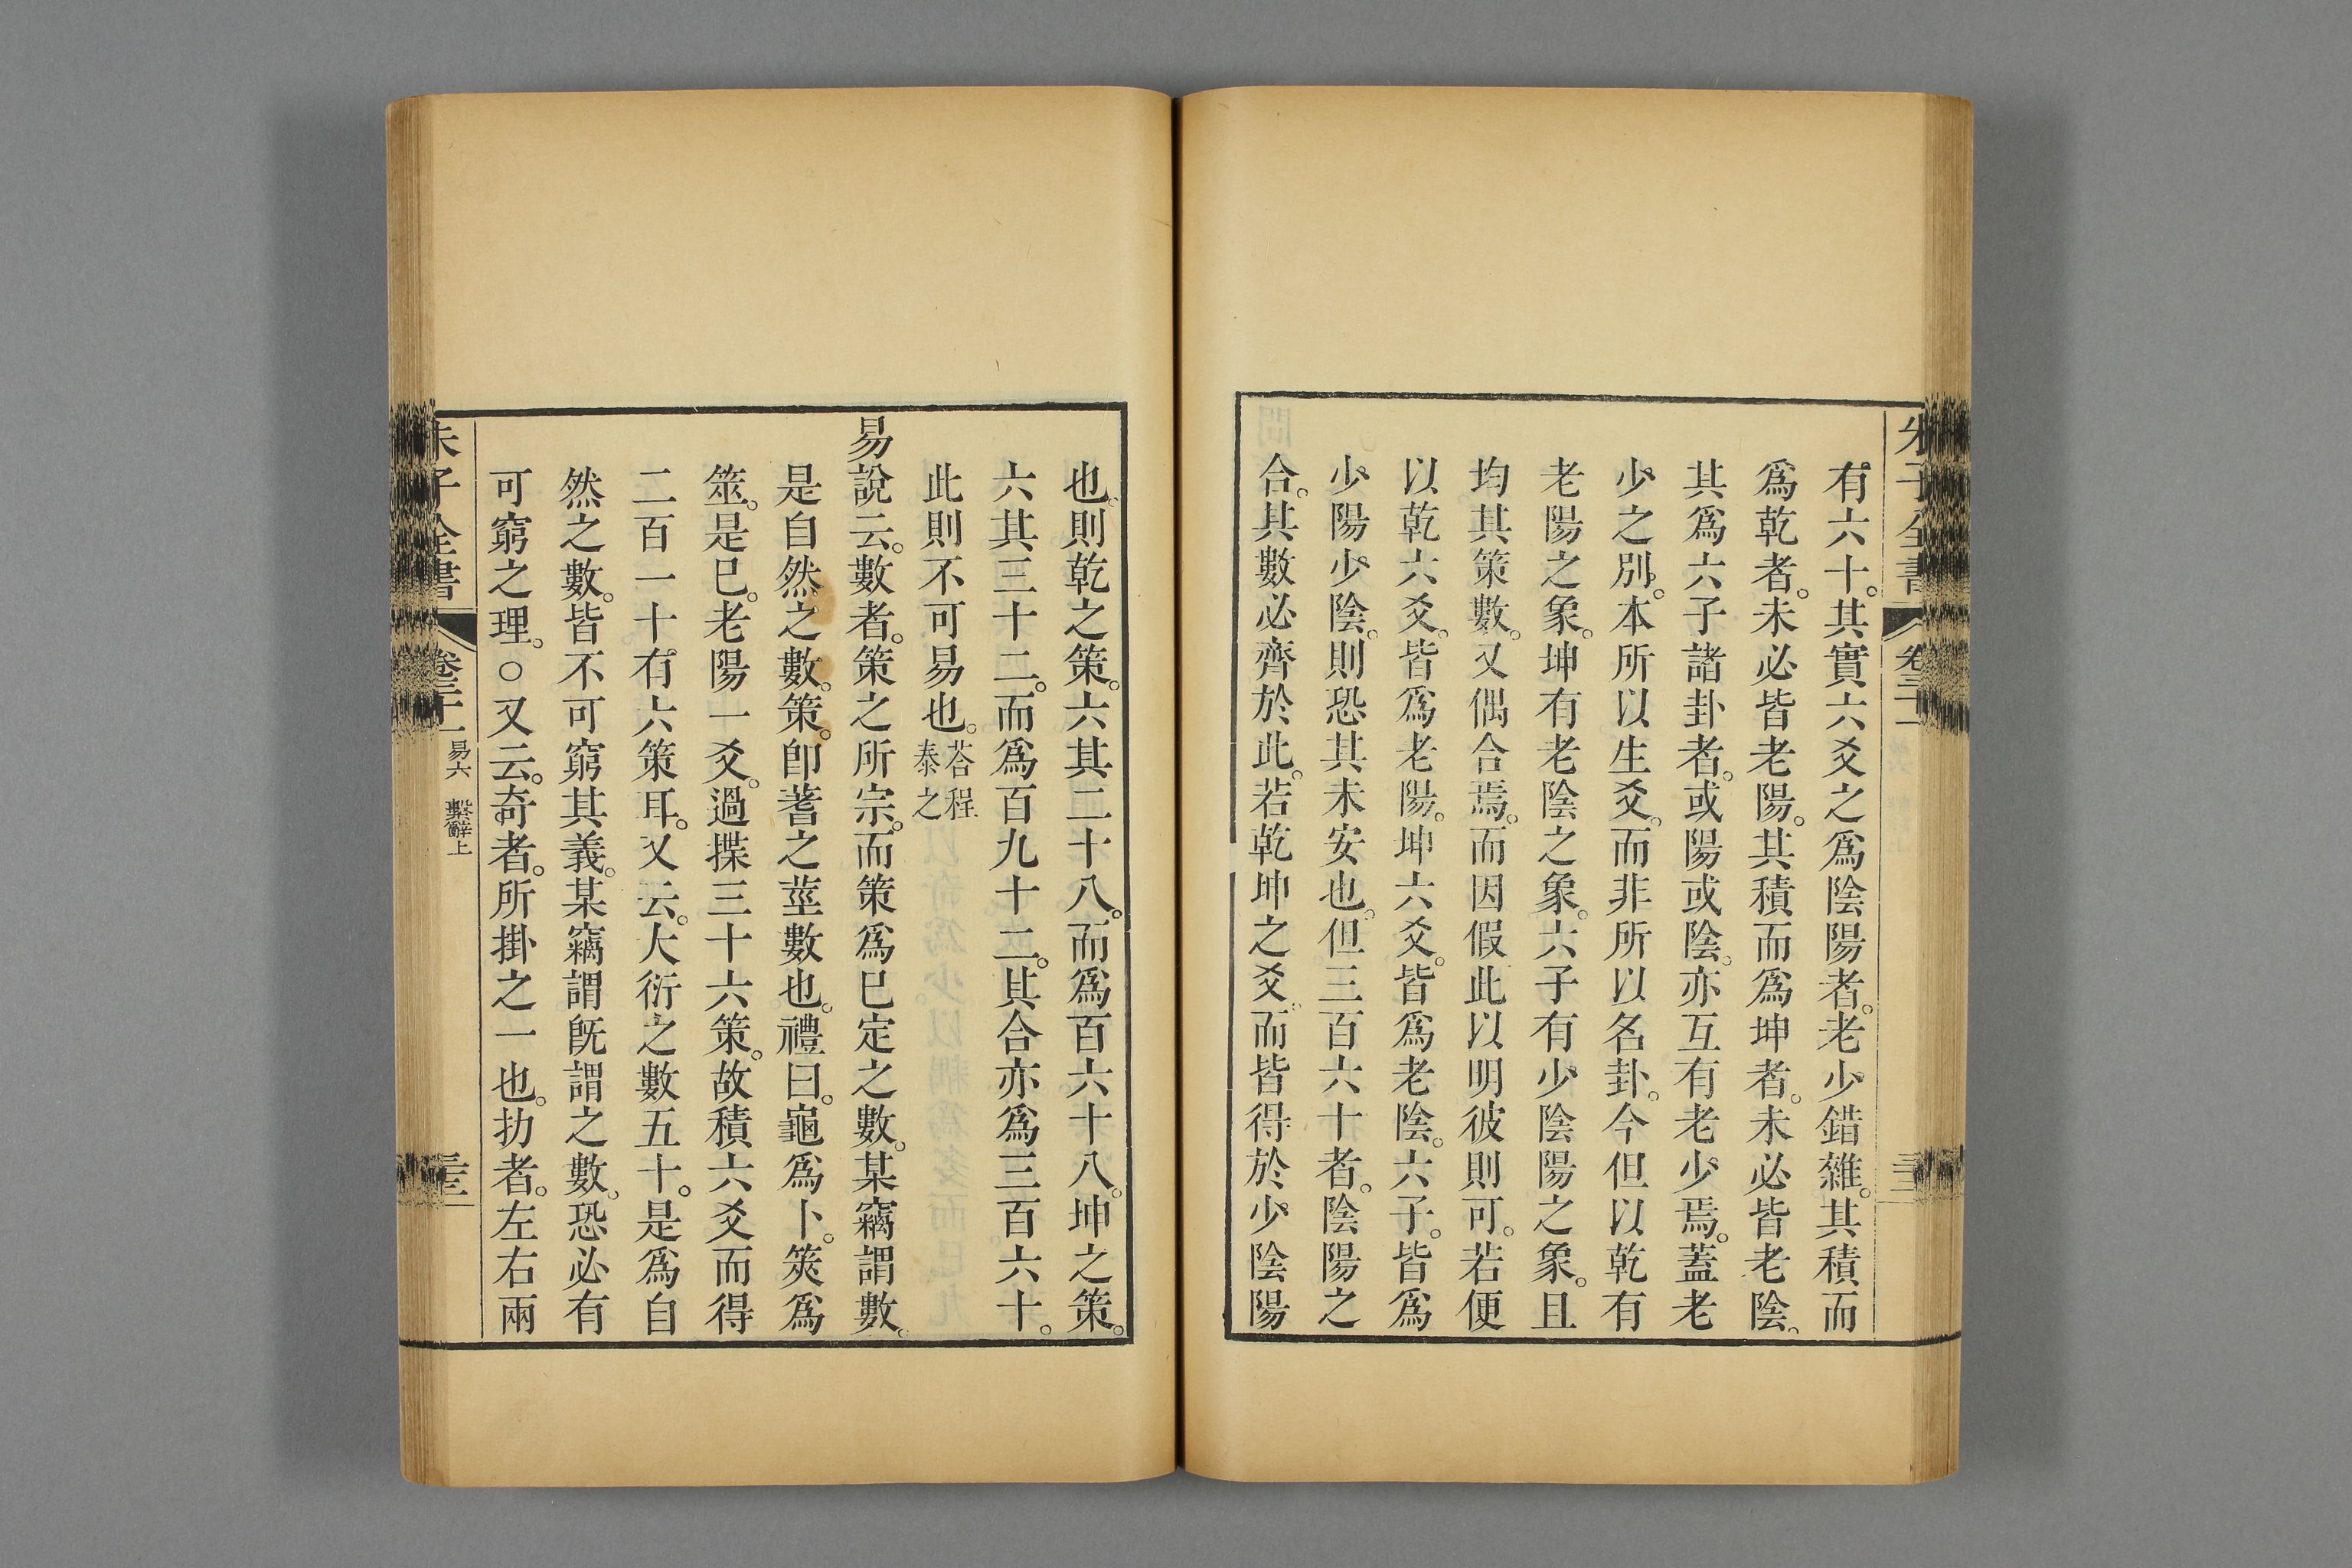 有六十。其實六爻之爲陰陽者。老少錯雜。其積而
爲乾者。未必皆老陽。其積而爲坤者。未必皆老陰。
其爲六子諸卦者。或陽或陰。亦互有老少焉。蓋老
少之別。本所以生爻。而非所以名卦。今但以乾有
老陽之象。坤有老陰之象。六子有少陰陽之象。且
均其策數。又偶合焉。而因假此以明彼則可。若便
以乾六爻。皆爲老陽。坤六爻。皆爲老陰。六子。皆爲
少陽少陰。則恐其未安也。但三百六十者。陰陽之
合。其數必齊於此。若乾坤之爻。而皆得於少陰陽
也。則乾之策。六其二十八。而爲百六十八。坤之策。
六其三十二。而爲百九十二。其合亦爲三百六十。
此則不可易也。荅程泰之
易說云。數者。策之所宗。而策爲已定之數。某竊謂數。
是自然之數。策。卽蓍之莖數也。禮曰。龜爲卜。筴爲
筮。是已。老陽一爻。過揲三十六策。故積六爻而得
二百一十有六策耳。又云。大衍之數五十。是爲自
然之數。皆不可窮其義。某竊謂旣謂之數。恐必有
可窮之理。○又云。奇者。所掛之一也。扐者。左右兩
朱子全書 卷三十一 易六 繫辭上